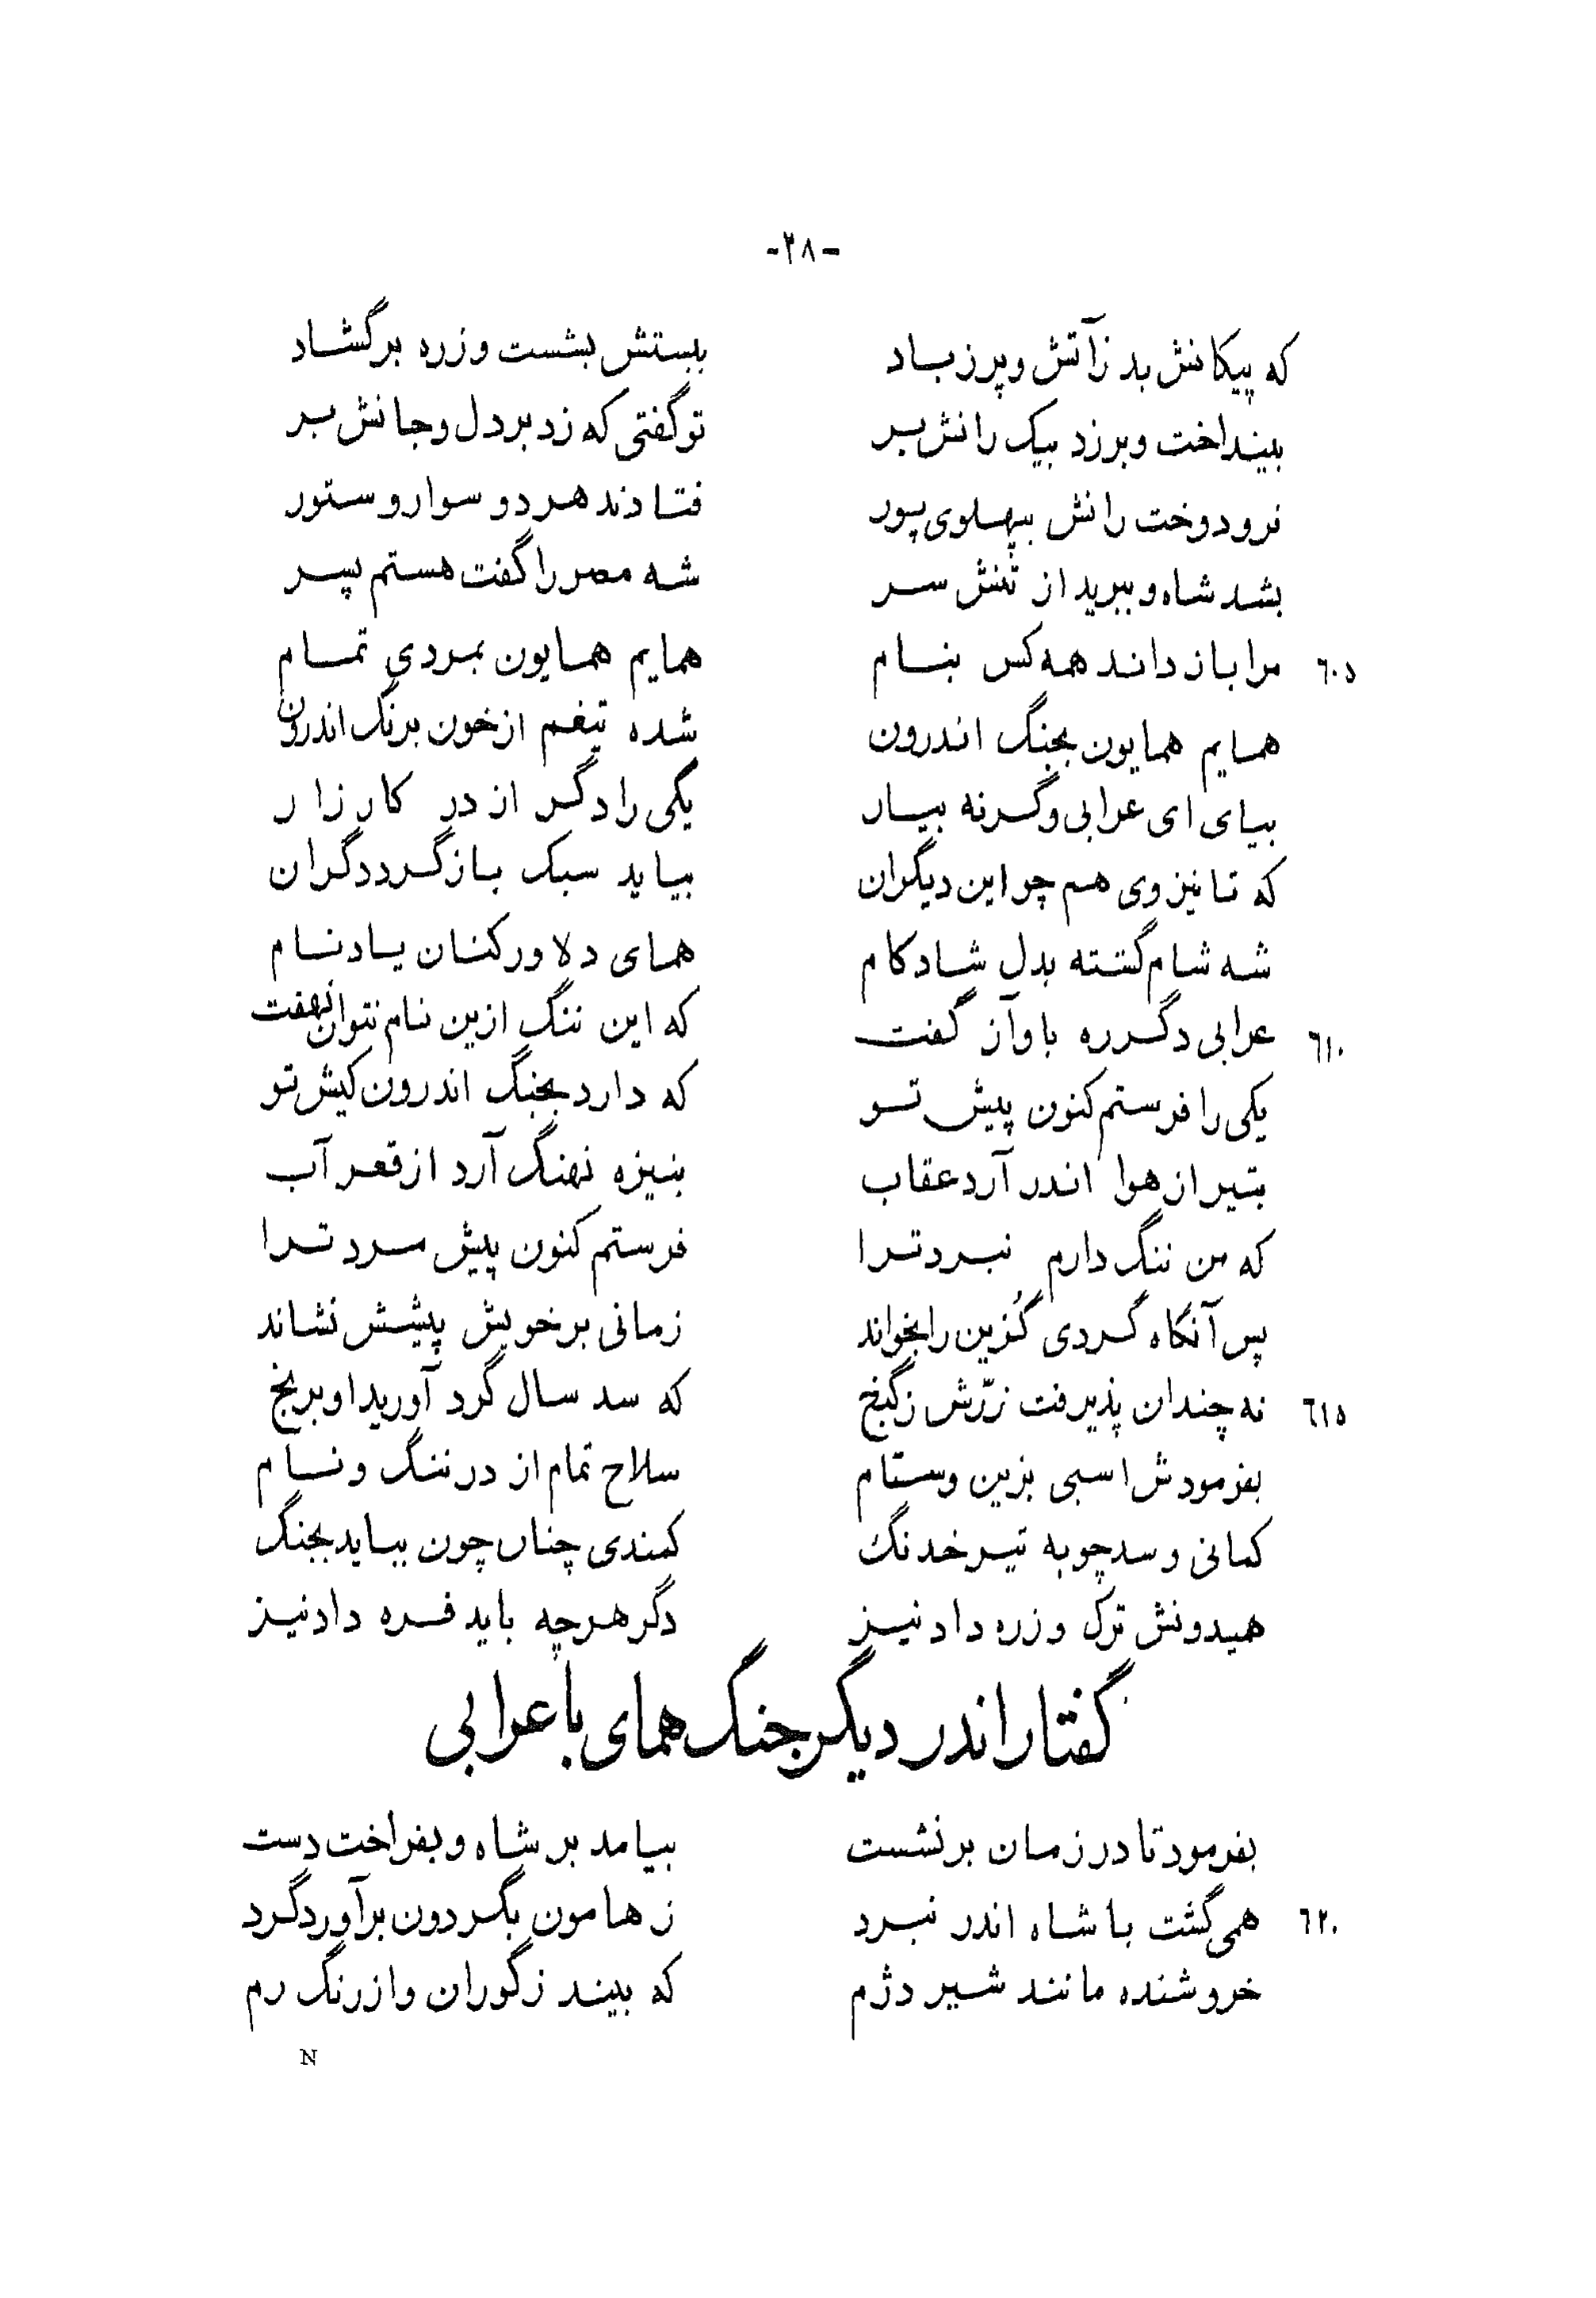 -۲۸-
که پیکانش بد زآتش و پر ز باد ببستش بشست و زره برگشاد
بینداخت و برزد بیک رانش بر تو گفتی که زد بر دل و جانش بر
فرو دوخت رانش بپهلوی پور فتادند هر دو سوار و ستور
بشد شاه و ببرید از تنش سر شه مصر را گفت هستم پسر
٦٠٥ مرا باز داند همه کس بنام همایم همایون بمردی تمام
همایم همایون بجنگ اندرون شده تیغم از خون برنگ اندرون
بیای ای عرابی وگرنه بیار یکی را دگر از در کارزار
که تا نیز وی هم چو این دیگران بیاید سبک بازگردد گران
شه شام گشته بدل شادکام همای دلاور کنان یاد نام
٦١٠ عرابی دگرره باواز گفت که این ننگ ازین نام نتوان نهفت
یکی را فرستم کنون پیش تو که دارد بجنگ اندرون کیش تو
بتیر از هوا اندر آرد عقاب بنیزه نهنگ آرد از قعر آب
که من ننگ دارم نبرد ترا فرستم کنون پیش مرد ترا
پس آنگاه گردی گزین را بخواند زمانی بر خویش پیشش نشاند
٦١٥ نه چندان پذیرفت زرّش ز گنج که سد سال گرد آورید او برنج
بفرمودش اسبی بزین و ستام سلاح تمام از در ننگ و نام
کمانی و سد چوبه تیر خدنگ کمندی چنان چون بباید بجنگ
هیدونش ترک و زره داد نیز دگر هرچه باید فره داد نیز
گفتار اندر دیگر جنگ همای با عرابی
بفرمود تا در زمان برنشست بیامد بر شاه و بفراخت دست
٦٢٠ همی گشت با شاه اندر نبرد ز هامون بگردون برآورد گرد
خروشنده مانند شیر دژم که بیند ز گوران و از رنگ رم
N